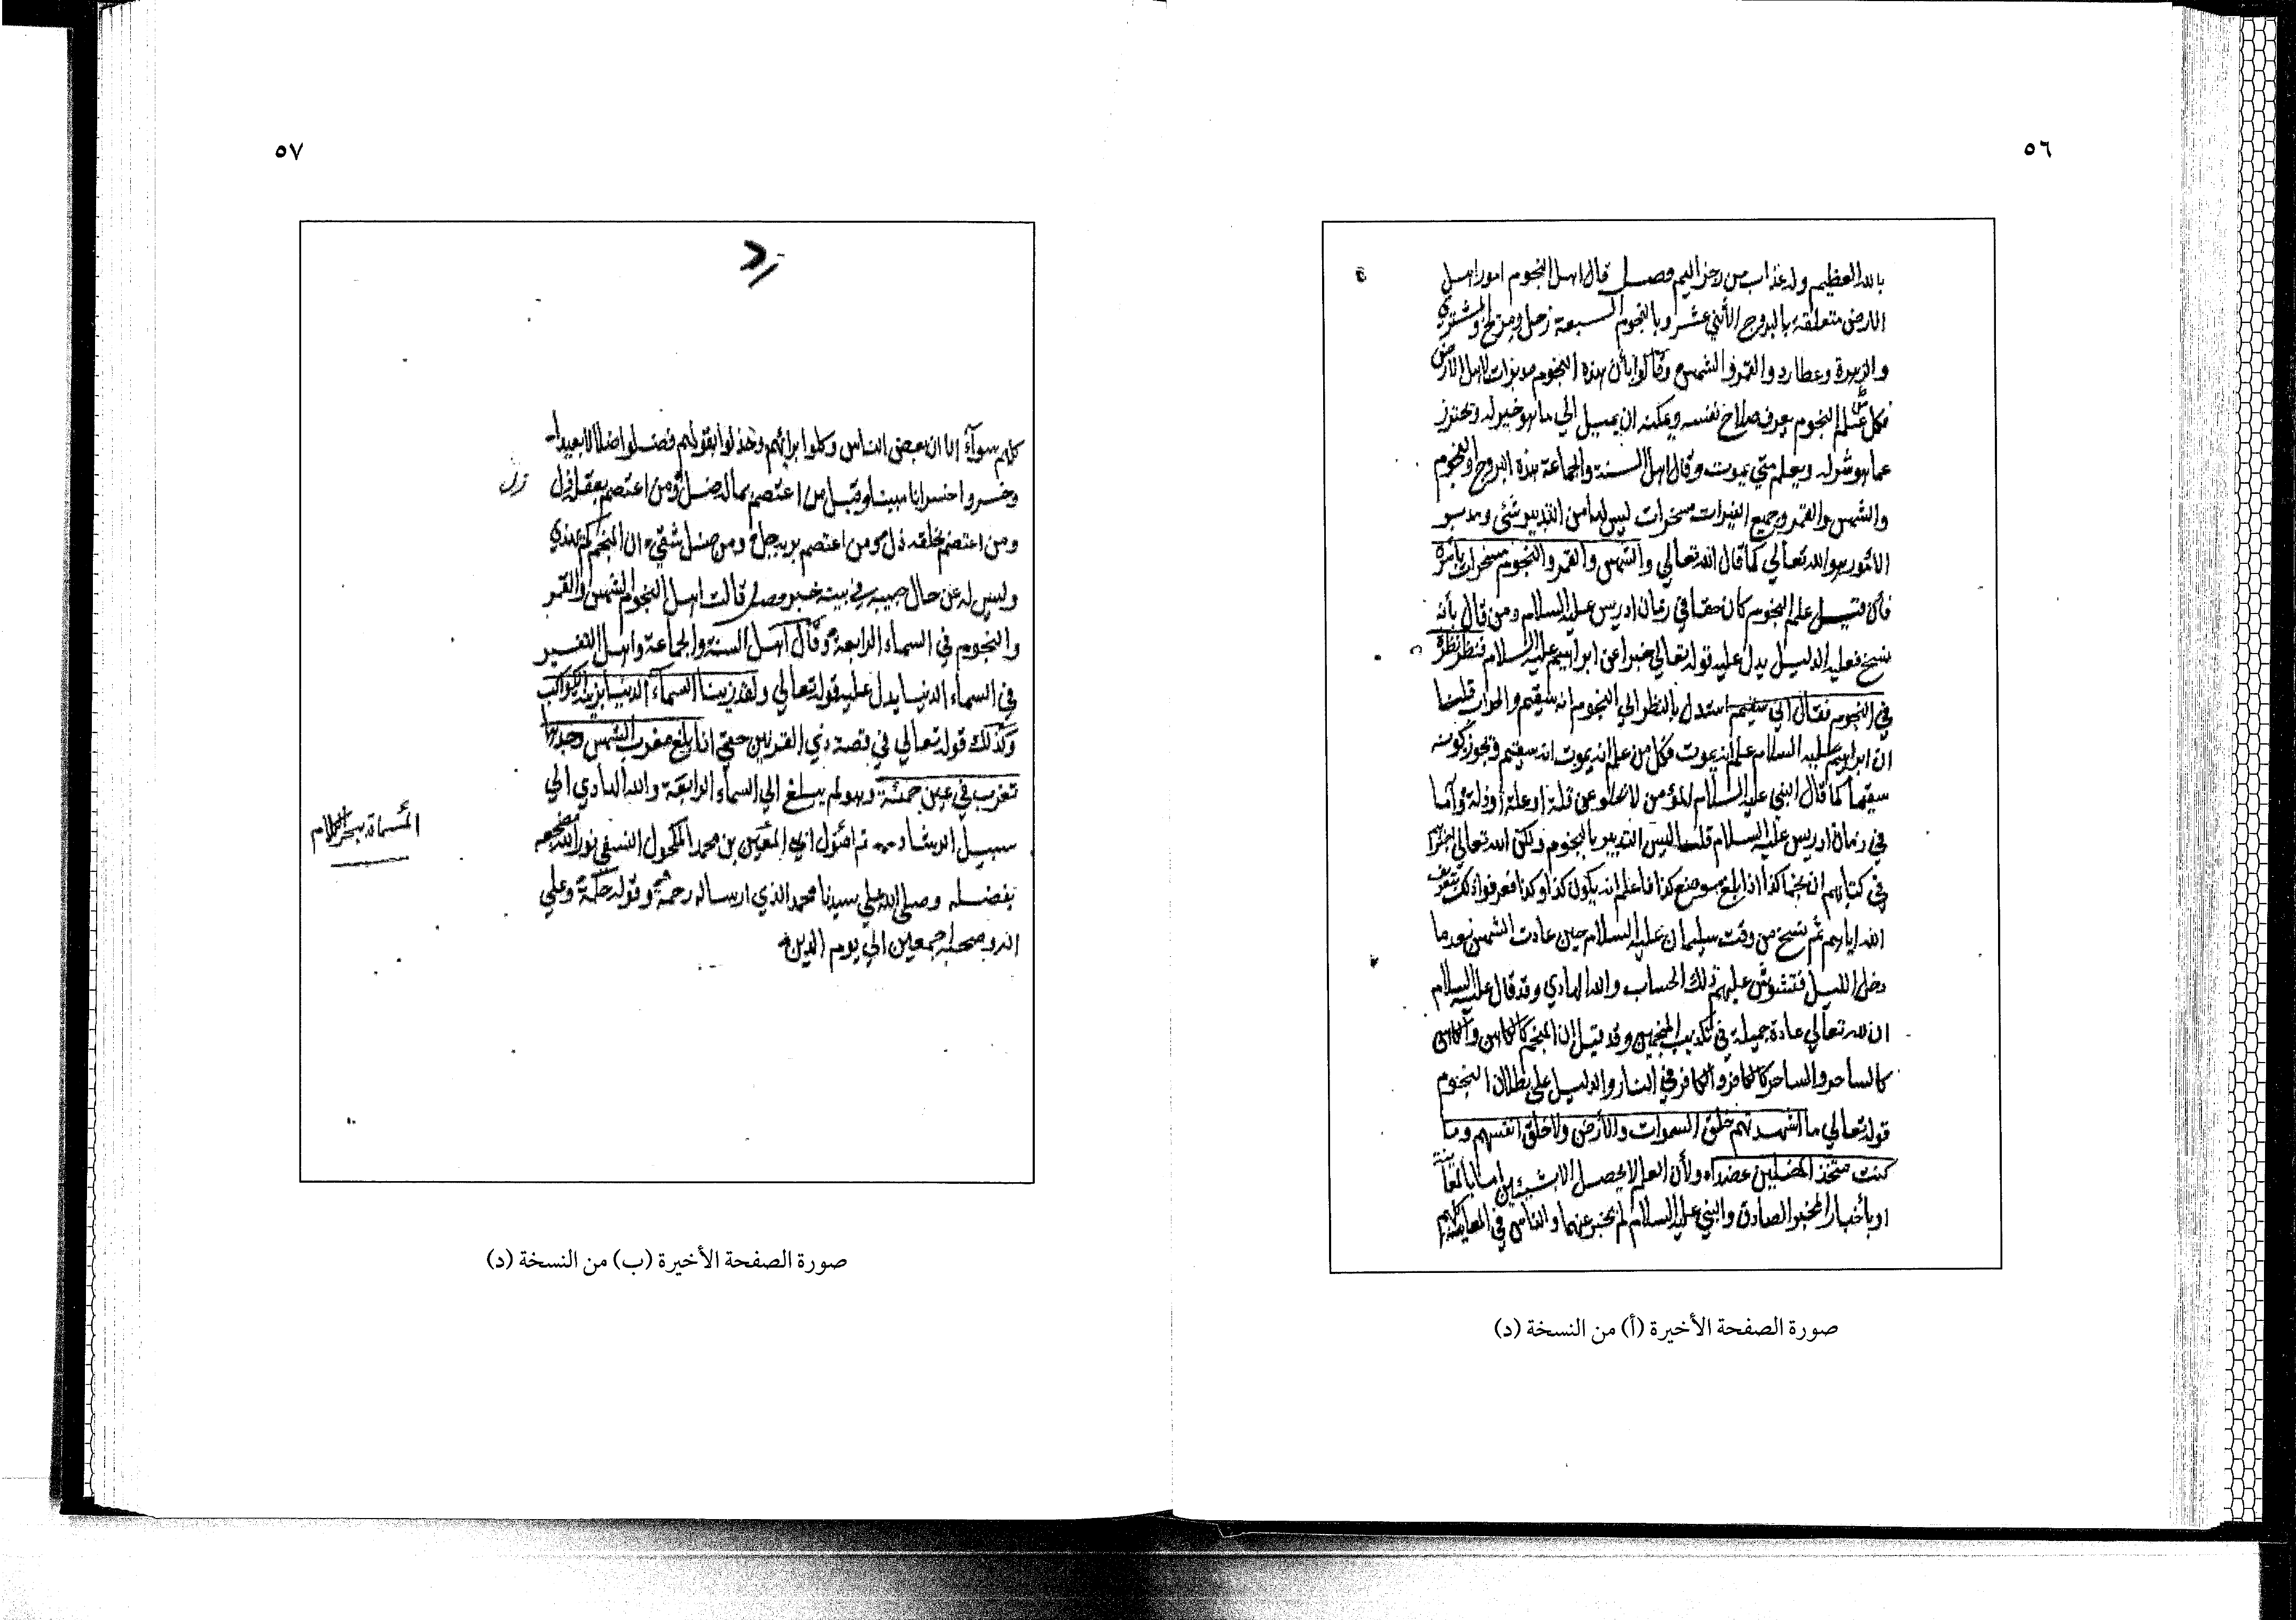 ٥٦
بالله العظيم وله عذاب من رجز اليم فصل قال اهل النجوم امور اهل
الارض متعلقة بالبروج الأثني عشر وبالنجوم السبعة زحل ومريخ والمشتري
والزهرة وعطارد والقمر والشمس وقالوا بأن هذه النجوم مدبرات لاهل الارض
فكل من علم النجوم يعرف صلاح نفسه ويمكنه ان يميل الي ما هو خير له ويحترز
عما هو شر له ويعلم متي يموت وقال اهل السنة والجماعة هذه البروج والنجوم
والشمس والقمر وجميع النيرات مسخرات ليس لها من التدبير شئ ومدبر
الأمور هو الله تعالي كما قال الله تعالي والشمس والقمر والنجوم مسخرات بأمره
فأن قيل علم النجوم كان حقا في زمان ادريس عليه السلام ومن قال بأنه
نسخ فعليه الدليل يدل عليه قوله تعالي خبرا عن ابراهيم عليه السلام فنظر نظرة
في النجوم فقال اني سقيم استدل بالنظر الي النجوم انه سقيم والجواب قلنا
ان ابراهيم عليه السلام علم انه يموت فكل من علم انه يموت انه سقيم ويجوز كونه
سقيما كما قال النبي عليه السلام المؤمن لا يخلو عن قلة او علة او ذلة وأما
في زمان ادريس عليه السلام قلنا ليس التدبير بالنجوم ولكن الله تعالي اخبر
في كتابهم ان نجما كذا اذا بلغ موضع كذا فاعلم انه يكون كذا وكذا فعرفوا ذلك بتعريف
الله اياهم ثم نسخ من وقت سليمان عليه السلام حين عادت الشمس بعد ما
دخل الليل فتشوش عليهم ذلك الحساب والله الهادي وقد قال عليه السلام
ان لله تعالي عادة جميلة في تكذيب المنجمين وقد قيل ان المنجم كالكاهن والكاهن
كالساحر والساحر كالكافر والكافر في النار والدليل علي بطلان النجوم
قوله تعالي ما اشهدتهم خلق السموات والأرض ولا خلق انفسهم وما
كنت متخذ المضلين عضدا ولأن العلم لا يحصل الا بشيئين اما بالمعاينة
او بأخبار المخبر الصادق والنبي عليه السلام لم يخبر عنهما والناس في المعاينة كلهم
صورة الصفحة الأخيرة (أ) من النسخة (د)
٥٧
كلهم سوآء الا ان بعض الناس وكلوا برائهم وخذلوا بقولهم فضلوا ضلالا بعيدا
وخسروا خسرانا مبينا وقيل من اعتصم بماله ضل ومن اعتصم بعقله زل
ومن اعتصم بخلقه ذل ومن اعتصم بربه جل ومن ضل شقي ان المنجم
وليس له عن حال حبيبه في بيته خبر فصل قالت اهل النجوم الشمس والقمر
والنجوم في السماء الرابعة وقال اهل السنة والجماعة واهل التفسير
في السماء الدنيا يدل عليه قوله تعالي ولقد زينا السمآء الدنيا بزينة الكواكب
وكذلك قوله تعالي في قصة ذي القرنين حتي اذا بلغ مغرب الشمس وجدها
تغرب في عين حمئة وهو لم يبلغ الي السماء الرابعة والله الهادي الي
سبيل الرشاد تم اصول ابي المعين بن محمد المكحول النسفي نور الله مضجعه
المسماة ببحر الكلام
بفضله وصلي الله علي سيدنا محمد الذي ارساله رحمة وقوله حكمة وعلي
اله وصحبه اجمعين الي يوم الدين
صورة الصفحة الأخيرة (ب) من النسخة (د)